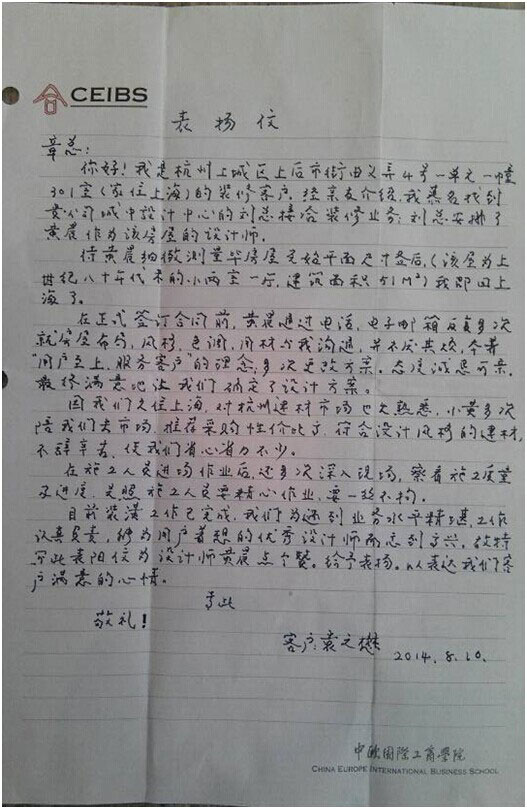 CEIBS
表扬信
章总:
你好!我是杭州上城区上后市街由义弄4号一单元一幢
301室(家住上海)的装修客户,经亲友介绍,我慕名找到
贵公司城中设计中心的刘总接洽装修业务,刘总安排了
黄晨作为该房屋的设计师。
待黄晨细微测量毕房屋是始平面尺寸签后,(该屋为上
世纪八十年代末的小两室一厅,建筑面积51M²)我即回上
海了。
在正式签订合同前,黄晨通过电话,电子邮箱反复多次
就房屋布局,风格,色调,用材与我沟通,并不厌其烦,本着
"用户至上,服务客户"的理念,多次更改方案。态度诚恳可亲,
最终满意地让我们确定了设计方案。
因我们久住上海,对杭州建材市场也欠熟悉,小黄多次
陪我们去市场,推荐采购性价比高,符合设计风格的建材,
不辞辛苦,使我们省心省力不少。
在施工人员进场作业后,还多次深入现场,察看施工质量
及进度,关照施工人员要精心作业,要一丝不拘。
目前装潢工作已完成,我们为遇到业务水平精湛,工作
认真负责,能为用户着想的优秀设计师而感到高兴,故特
写此表扬信为设计师黄晨点个赞。给予表扬。以表达我们客
户满意的心情。
专此
敬礼!
客户:袁之懋
2014.8.10.
中欧国际工商学院
CHINA EUROPE INTERNATIONAL BUSINESS SCHOOL